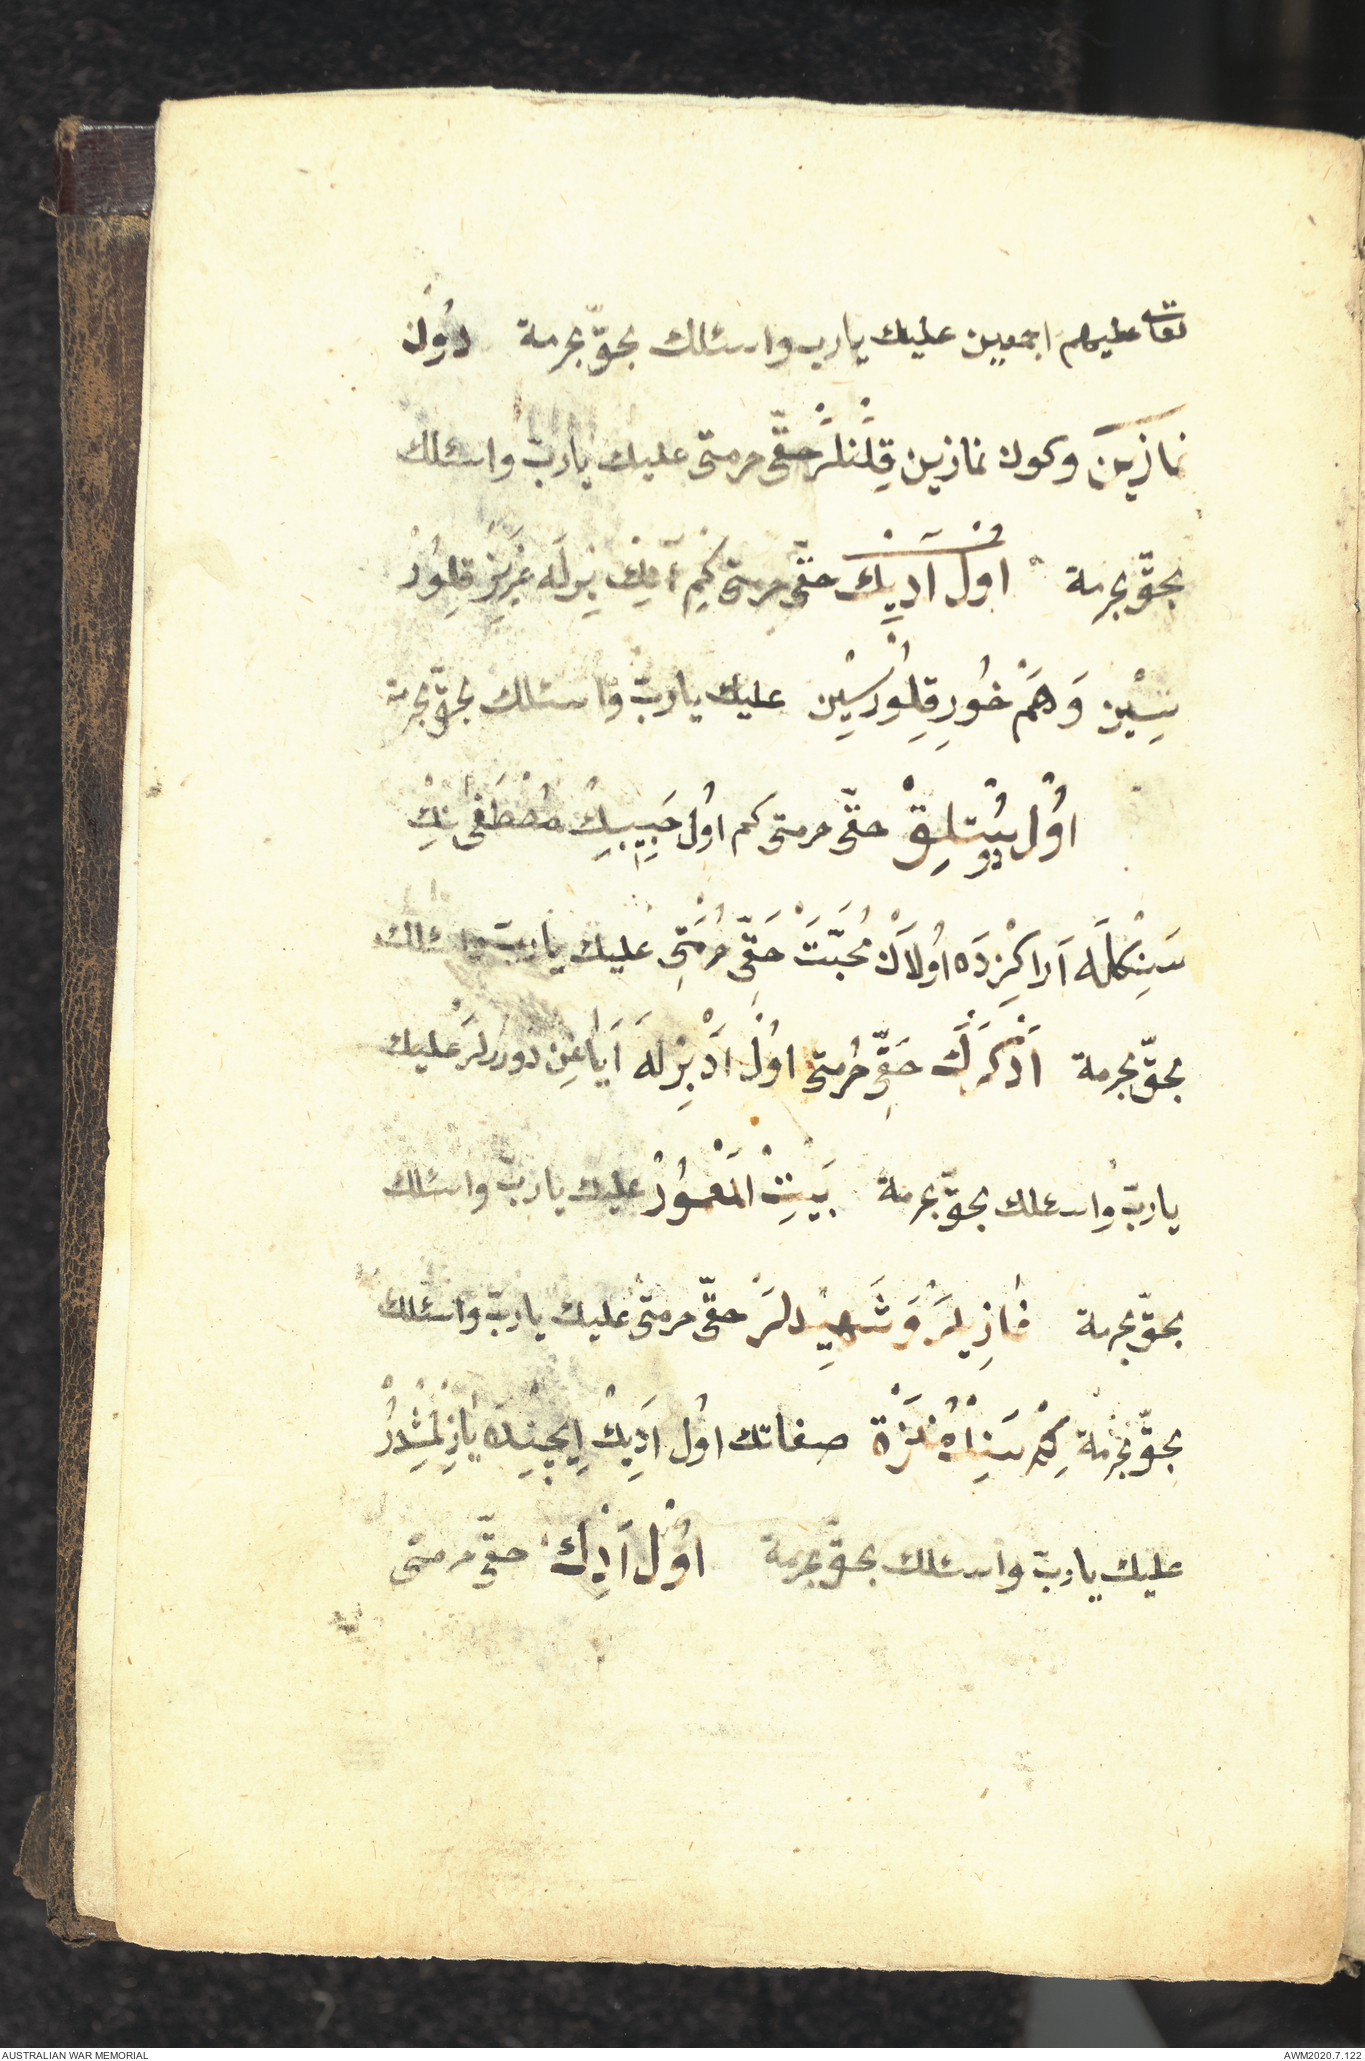 تعالى عليهم اجمعين عليك يارب واسئلك بحقّ بحرمة دُون
نمازين وكون نمازين قِلَنلَرْ حقّى حرمتى عليك ياربّ واسئلك
بحقّ بحرمة اول آدِيڭ حقّى حرمتى كِمِ آنِڭ بِزله عزيز قِلُورْ
سِيْن وَهَمْ خُورِ قِلُورْسِيْن عليك ياربّ واسئلك بحقّ بحرمة
اُول حقّى حرمتى كم اوُل حَبِيبِڭْ مُصْطَفٰى نِڭْ
سَنِڭلَه آرا كِزدَه اُولاَنْ مُحَبَّتَ حَقِّى حُرْمَتِى عليك ياربّ واسئلك
بحقّ بحرمة حَقِّى حُرمتى اُول عليك
ياربّ واسئلك بحقّ بحرمة بَيتِ الْمَعْمُورْ عليك ياربّ واسئلك
بحقّ بحرمة غازِيلَرْ وَ شَهِيدلَرْ حقّى حرمتى عليك ياربّ واسئلك
بحقّ بحرمة صفاتك اوُل آدِيڭْ اِيچِنْدَه يازِلْمِشْدُرْ
عليك ياربّ واسئلك بحقّ بحرمة اوُل آدِڭ حقّى حرمتى
AUSTRALIAN WAR MEMORIAL
AWM2020.7.122